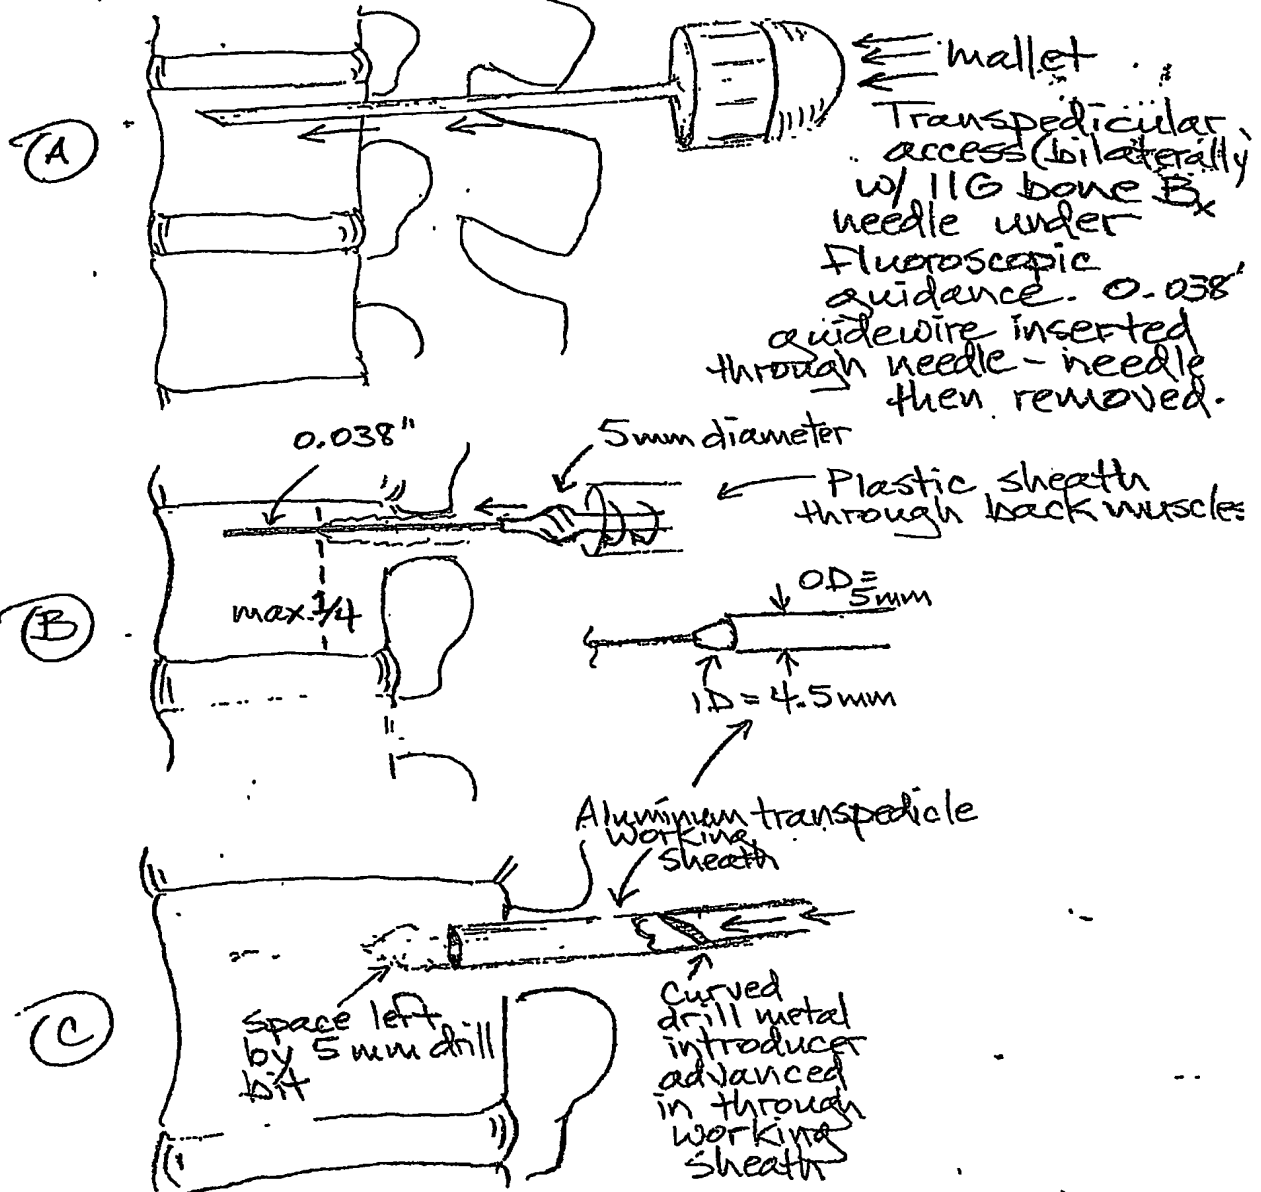 mallet
(A)
Transpedicular
access (bilaterally)
w/ 11G bone Bx
needle under
Fluoroscopic
guidance. 0.038"
guidewire inserted
through needle - needle
then removed.
0.038"
5mm diameter
Plastic sheath
through back muscles
(B)
max. 1/4
OD =
5mm
ID = 4.5mm
Aluminum transpedicle
working
sheath
(C)
space left
by 5mm drill
bit
Curved
drill metal
introducer
advanced
in through
working
sheath